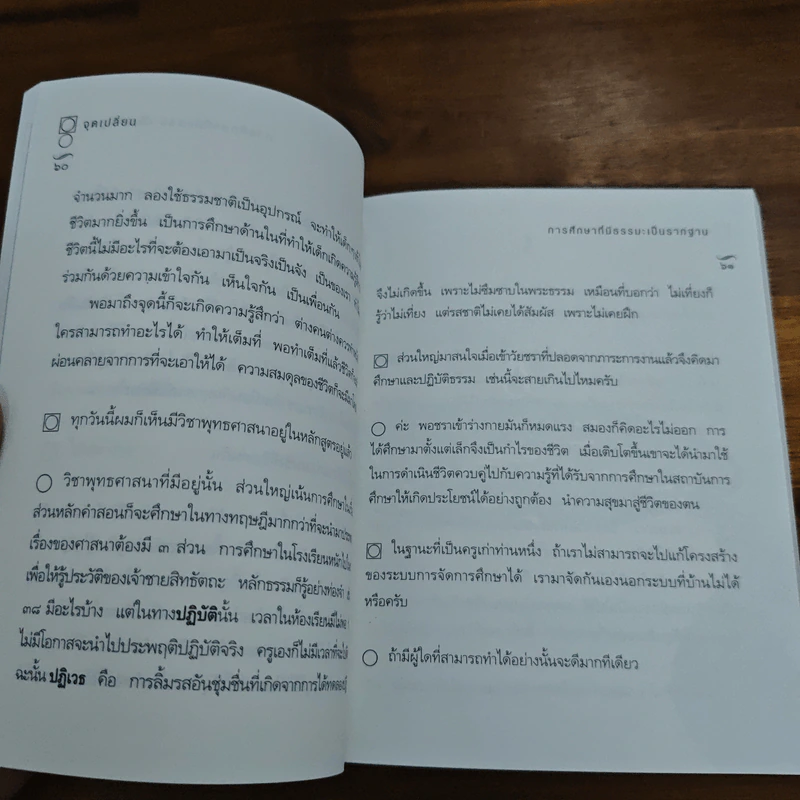 จุดเปลี่ยน
๖๐
จำนวนมาก ลองใช้ธรรมชาติเป็นอุปกรณ์ จะทำให้เด็ก
ชีวิตมากยิ่งขึ้น เป็นการศึกษาด้านในที่ทำให้เด็กเกิดความรู้
ชีวิตนี้ไม่มีอะไรที่จะต้องเอามาเป็นจริงเป็นจัง เป็นของเรา
ร่วมกันด้วยความเข้าใจกัน เห็นใจกัน เป็นเพื่อนกัน
พอมาถึงจุดนี้ก็จะเกิดความรู้สึกว่า ต่างคนต่างควร
ใครสามารถทำอะไรได้ ทำให้เต็มที่ พอทำเต็มที่แล้วชีวิตก็
ผ่อนคลายจากการที่จะเอาให้ได้ ความสมดุลของชีวิตก็จะ
ทุกวันนี้ผมก็เห็นมีวิชาพุทธศาสนาอยู่ในหลักสูตรอยู่แล้ว
วิชาพุทธศาสนาที่มีอยู่นั้น ส่วนใหญ่เน้นการศึกษาใน
ส่วนหลักคำสอนก็จะศึกษาในทางทฤษฎีมากกว่าที่จะนำมา
เรื่องของศาสนาต้องมี ๓ ส่วน การศึกษาในโรงเรียนหนักไป
เพื่อให้รู้ประวัติของเจ้าชายสิทธัตถะ หลักธรรมก็รู้อย่างท่องจำ
๓๘ มีอะไรบ้าง แต่ในทางปฏิบัตินั้น เวลาในห้องเรียนมีไม่
ไม่มีโอกาสจะนำไปประพฤติปฏิบัติจริง ครูเองก็ไม่มีเวลาที่จะ
ฉะนั้น ปฏิเวธ คือ การลิ้มรสอันชุ่มชื่นที่เกิดจากการได้ทดลอง
การศึกษาที่มีธรรมะเป็นรากฐาน
๖๑
จึงไม่เกิดขึ้น เพราะไม่ซึมซาบในพระธรรม เหมือนที่บอกว่า ไม่เที่ยงก็
รู้ว่าไม่เที่ยง แต่รสชาติไม่เคยได้สัมผัส เพราะไม่เคยฝึก
ส่วนใหญ่มาสนใจเมื่อเข้าวัยชราที่ปลอดจากภาระการงานแล้วจึงคิดมา
ศึกษาและปฏิบัติธรรม เช่นนี้จะสายเกินไปไหมครับ
ค่ะ พอชราเข้าร่างกายมันก็หมดแรง สมองก็คิดอะไรไม่ออก การ
ได้ศึกษามาตั้งแต่เล็กจึงเป็นกำไรของชีวิต เมื่อเติบโตขึ้นเขาจะได้นำมาใช้
ในการดำเนินชีวิตควบคู่ไปกับความรู้ที่ได้รับจากการศึกษาในสถาบันการ
ศึกษาให้เกิดประโยชน์ได้อย่างถูกต้อง นำความสุขมาสู่ชีวิตของตน
ในฐานะที่เป็นครูเก่าท่านหนึ่ง ถ้าเราไม่สามารถจะไปแก้โครงสร้าง
ของระบบการจัดการศึกษาได้ เรามาจัดกันเองนอกระบบที่บ้านไม่ได้
หรือครับ
ถ้ามีผู้ใดที่สามารถทำได้อย่างนั้นจะดีมากทีเดียว